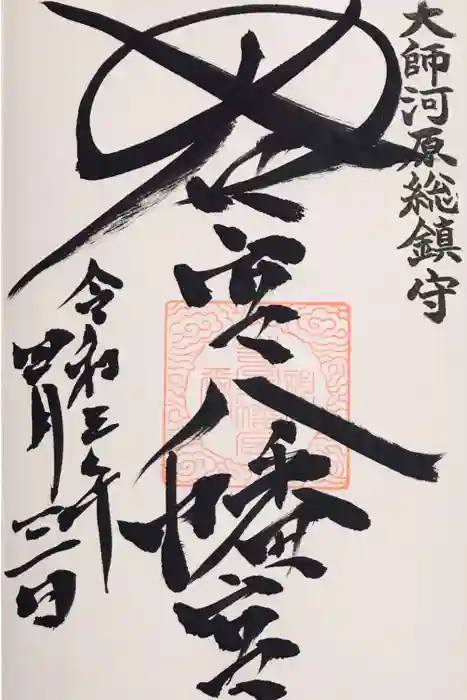 大師河原総鎮守
若宮八幡宮
令和三年
四月三日